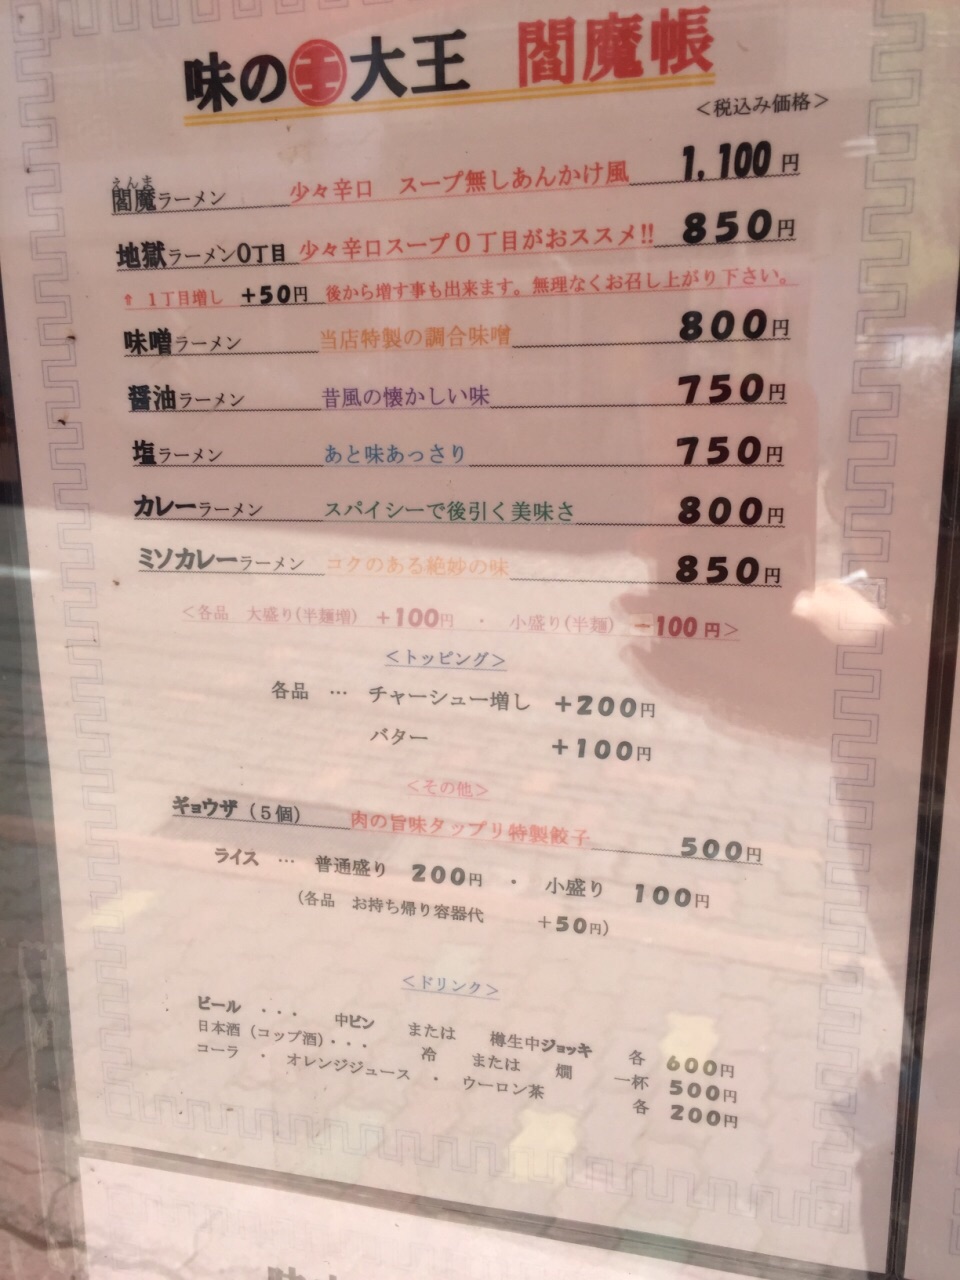 味の王大王 閻魔帳
＜税込み価格＞
閻魔ラーメン 少々辛口 スープ無しあんかけ風 1,100円
えんま
地獄ラーメン0丁目 少々辛口スープ０丁目がおススメ!! 850円
⇧ １丁目増し +50円 後から増す事も出来ます。無理なくお召し上がり下さい。
味噌ラーメン 当店特製の調合味噌 800円
醤油ラーメン 昔風の懐かしい味 750円
塩ラーメン あと味あっさり 750円
カレーラーメン スパイシーで後引く美味さ 800円
ミソカレーラーメン コクのある絶妙の味 850円
＜各品 大盛り(半麺増) +100円 ・ 小盛り(半麺) －100円＞
＜トッピング＞
各品 … チャーシュー増し +200円
バター +100円
＜その他＞
ギョウザ（５個） 肉の旨味タップリ特製餃子 500円
ライス … 普通盛り 200円 ・ 小盛り 100円
（各品 お持ち帰り容器代 +50円）
＜ドリンク＞
ビール ・・・ 中ビン または 樽生中ジョッキ 各 600円
日本酒（コップ酒）・・・ 冷 または 燗 一杯 500円
コーラ ・ オレンジジュース ・ ウーロン茶 各 200円